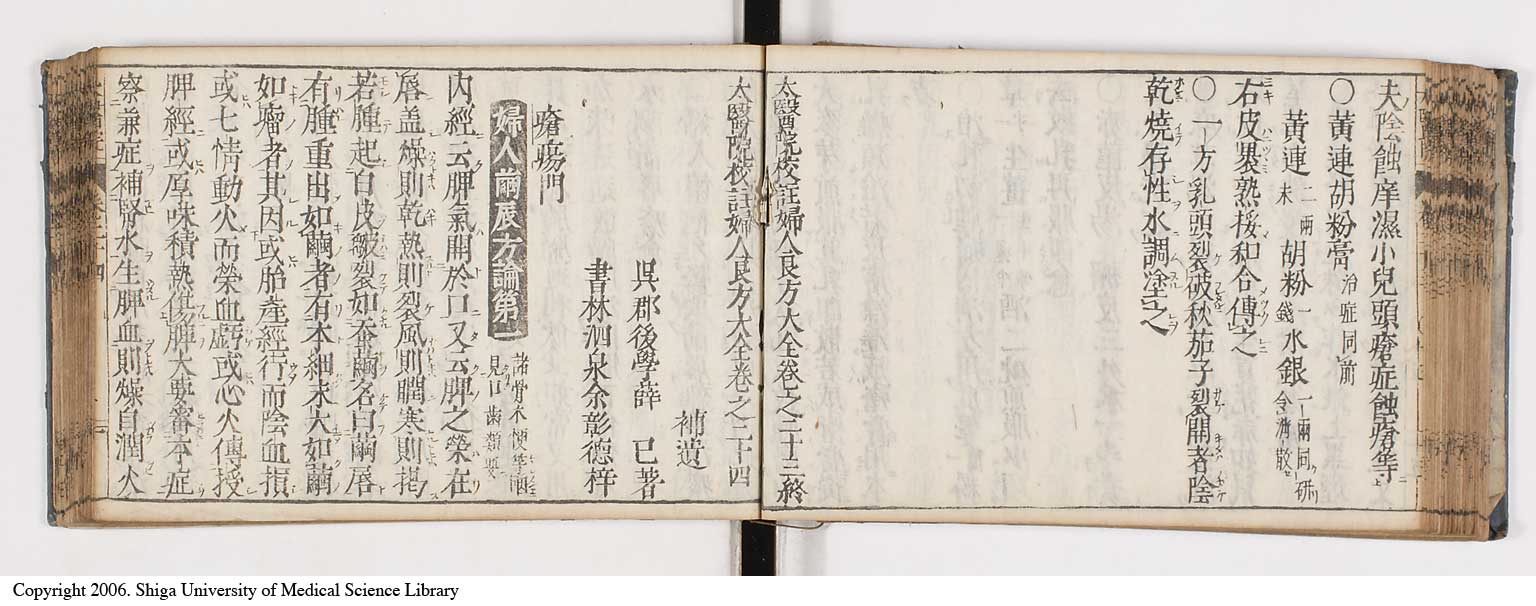 夫陰蝕痒濕小兒頭瘡症蝕瘡等
〇黃連胡粉膏 治症同前
黃連 二兩末 胡粉 一錢 水銀 一兩同研令消散
右皮裹熟挼和合傅之
〇一方乳頭裂破秋茄子裂開者陰
乾燒存性水調塗之
太醫院校註婦人良方大全卷之二十三終
太醫院校註婦人良方大全卷之二十四
補遺
吳郡後學薛 己著
書林泗泉余彰德梓
瘡瘍門
婦人繭唇方論第一 諸骨不梗等需見口齒類要
內經云脾氣開於口又云脾之榮在
唇盖燥則乾熱則裂風則瞤寒則揭
若腫起白皮皺裂如蚕繭名曰繭唇
有腫重出如繭者有本細末大如繭
如瘤者其因或胎產經行而陰血損
或七情動火而榮血虧或心火傳授
脾經或厚味積熱傷脾大要審本症
察兼症補腎水生脾血則燥自潤火
Copyright 2006. Shiga University of Medical Science Library